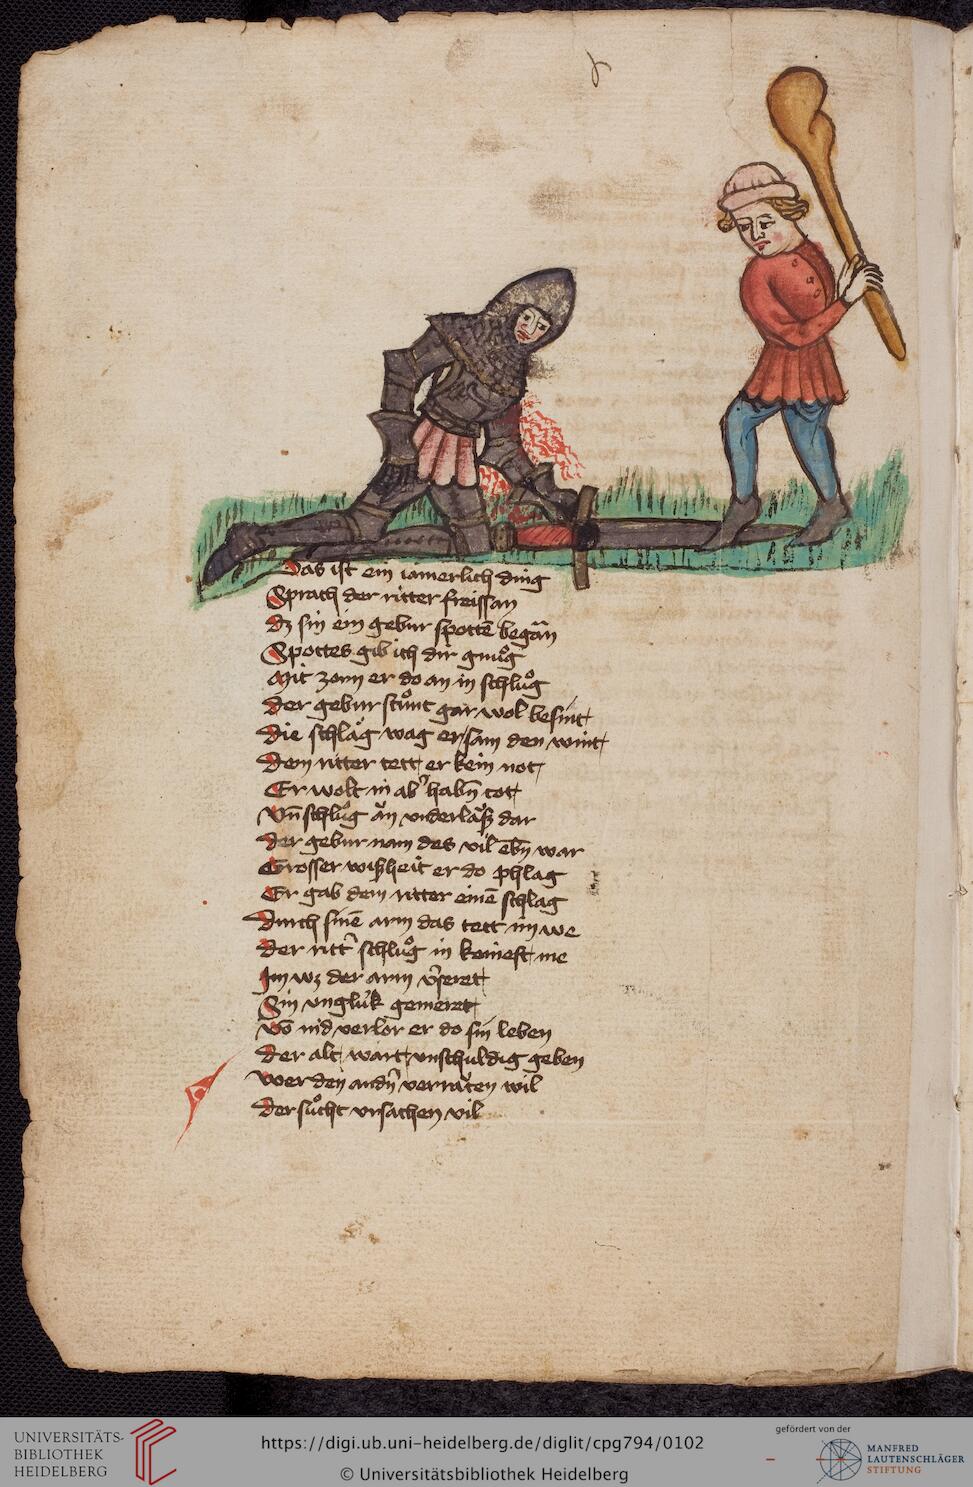 Das ist ein iamerlich ding
Sprach der ritter freissan
dz sin ein gebur spottē began
Spottes gib ich dir gnuͦg
Mit zorn er do an in schluͦg
der gebur stuͦnt gar wol besint
die schlaͤg wag er sam den wint
dem ritter tett er kein not
Er wolt in abʼ habn̄ tot
vn̄ schluͦg aͮn vnderlaͮß dar
der gebur nam des vil ebn̄ war
Grosser wißheit er do phlag
Er gab dem ritter einē schlag
durch sinē arm das tett im we
der rittʼ schluͦg in keinest me
Im wz der arm vʼseret
Sin vngluͤk gemeret
vō nid verlor er do sin leben
der alt wart vnschuldig geben
wer den andn̄ verraͮten wil
der suͦcht vrsachen vil
UNIVERSITÄTS-
BIBLIOTHEK
HEIDELBERG
https://digi.ub.uni-heidelberg.de/diglit/cpg794/0102
© Universitätsbibliothek Heidelberg
gefördert von der
MANFRED
LAUTENSCHLÄGER
STIFTUNG